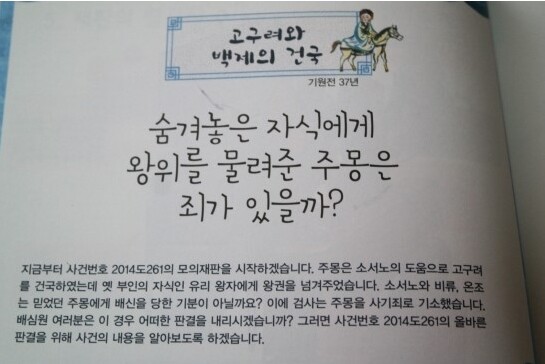 고구려와
백제의 건국
기원전 37년
숨겨놓은 자식에게
왕위를 물려준 주몽은
죄가 있을까?
지금부터 사건번호 2014도261의 모의재판을 시작하겠습니다. 주몽은 소서노의 도움으로 고구려
를 건국하였는데 옛 부인의 자식인 유리 왕자에게 왕권을 넘겨주었습니다. 소서노와 비류, 온조
는 믿었던 주몽에게 배신을 당한 기분이 아닐까요? 이에 검사는 주몽을 사기죄로 기소했습니다.
배심원 여러분은 이 경우 어떠한 판결을 내리시겠습니까? 그러면 사건번호 2014도261의 올바른
판결을 위해 사건의 내용을 알아보도록 하겠습니다.